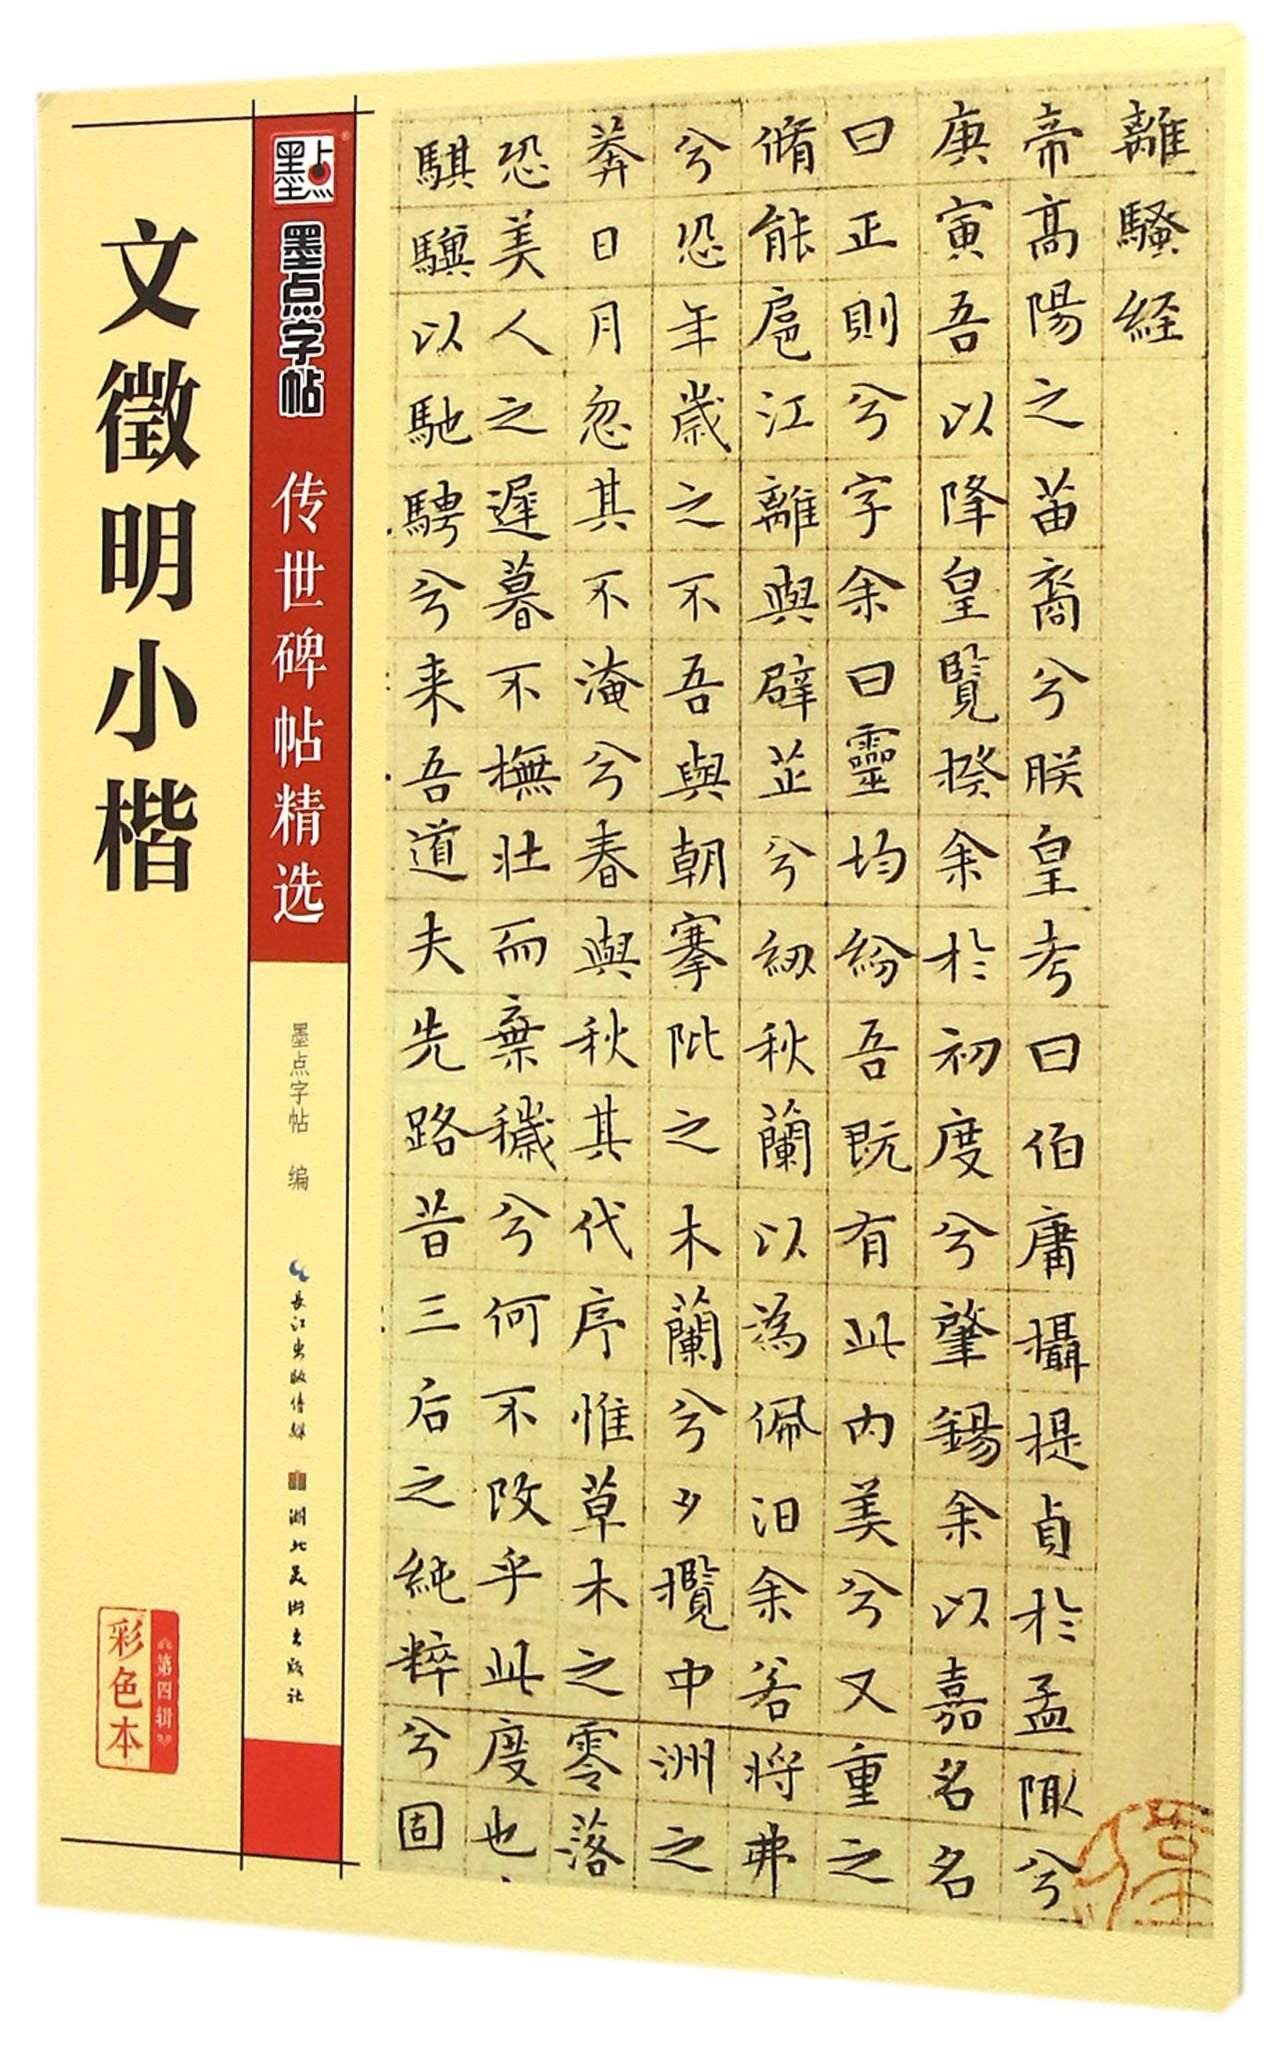 文徵明小楷
墨点
墨点字帖
传世碑帖精选
墨点字帖 编
長江出版傳媒
湖北美术出版社
彩色本
第四辑
離騷経
帝高陽之苗裔兮朕皇考曰伯庸攝提貞於孟陬兮
庚寅吾以降皇覽揆余於初度兮肇錫余以嘉名名
曰正則兮字余曰靈均紛吾既有此内美兮又重之
脩能扈江離與辟芷兮紉秋蘭以為佩汩余若將弗
兮恐年歲之不吾與朝搴阰之木蘭兮夕攬中洲之
莽日月忽其不淹兮春與秋其代序惟草木之零落
恐美人之遲暮不撫壮而棄穢兮何不改乎此度也
騏驥以馳騁兮来吾道夫先路昔三后之純粹兮固